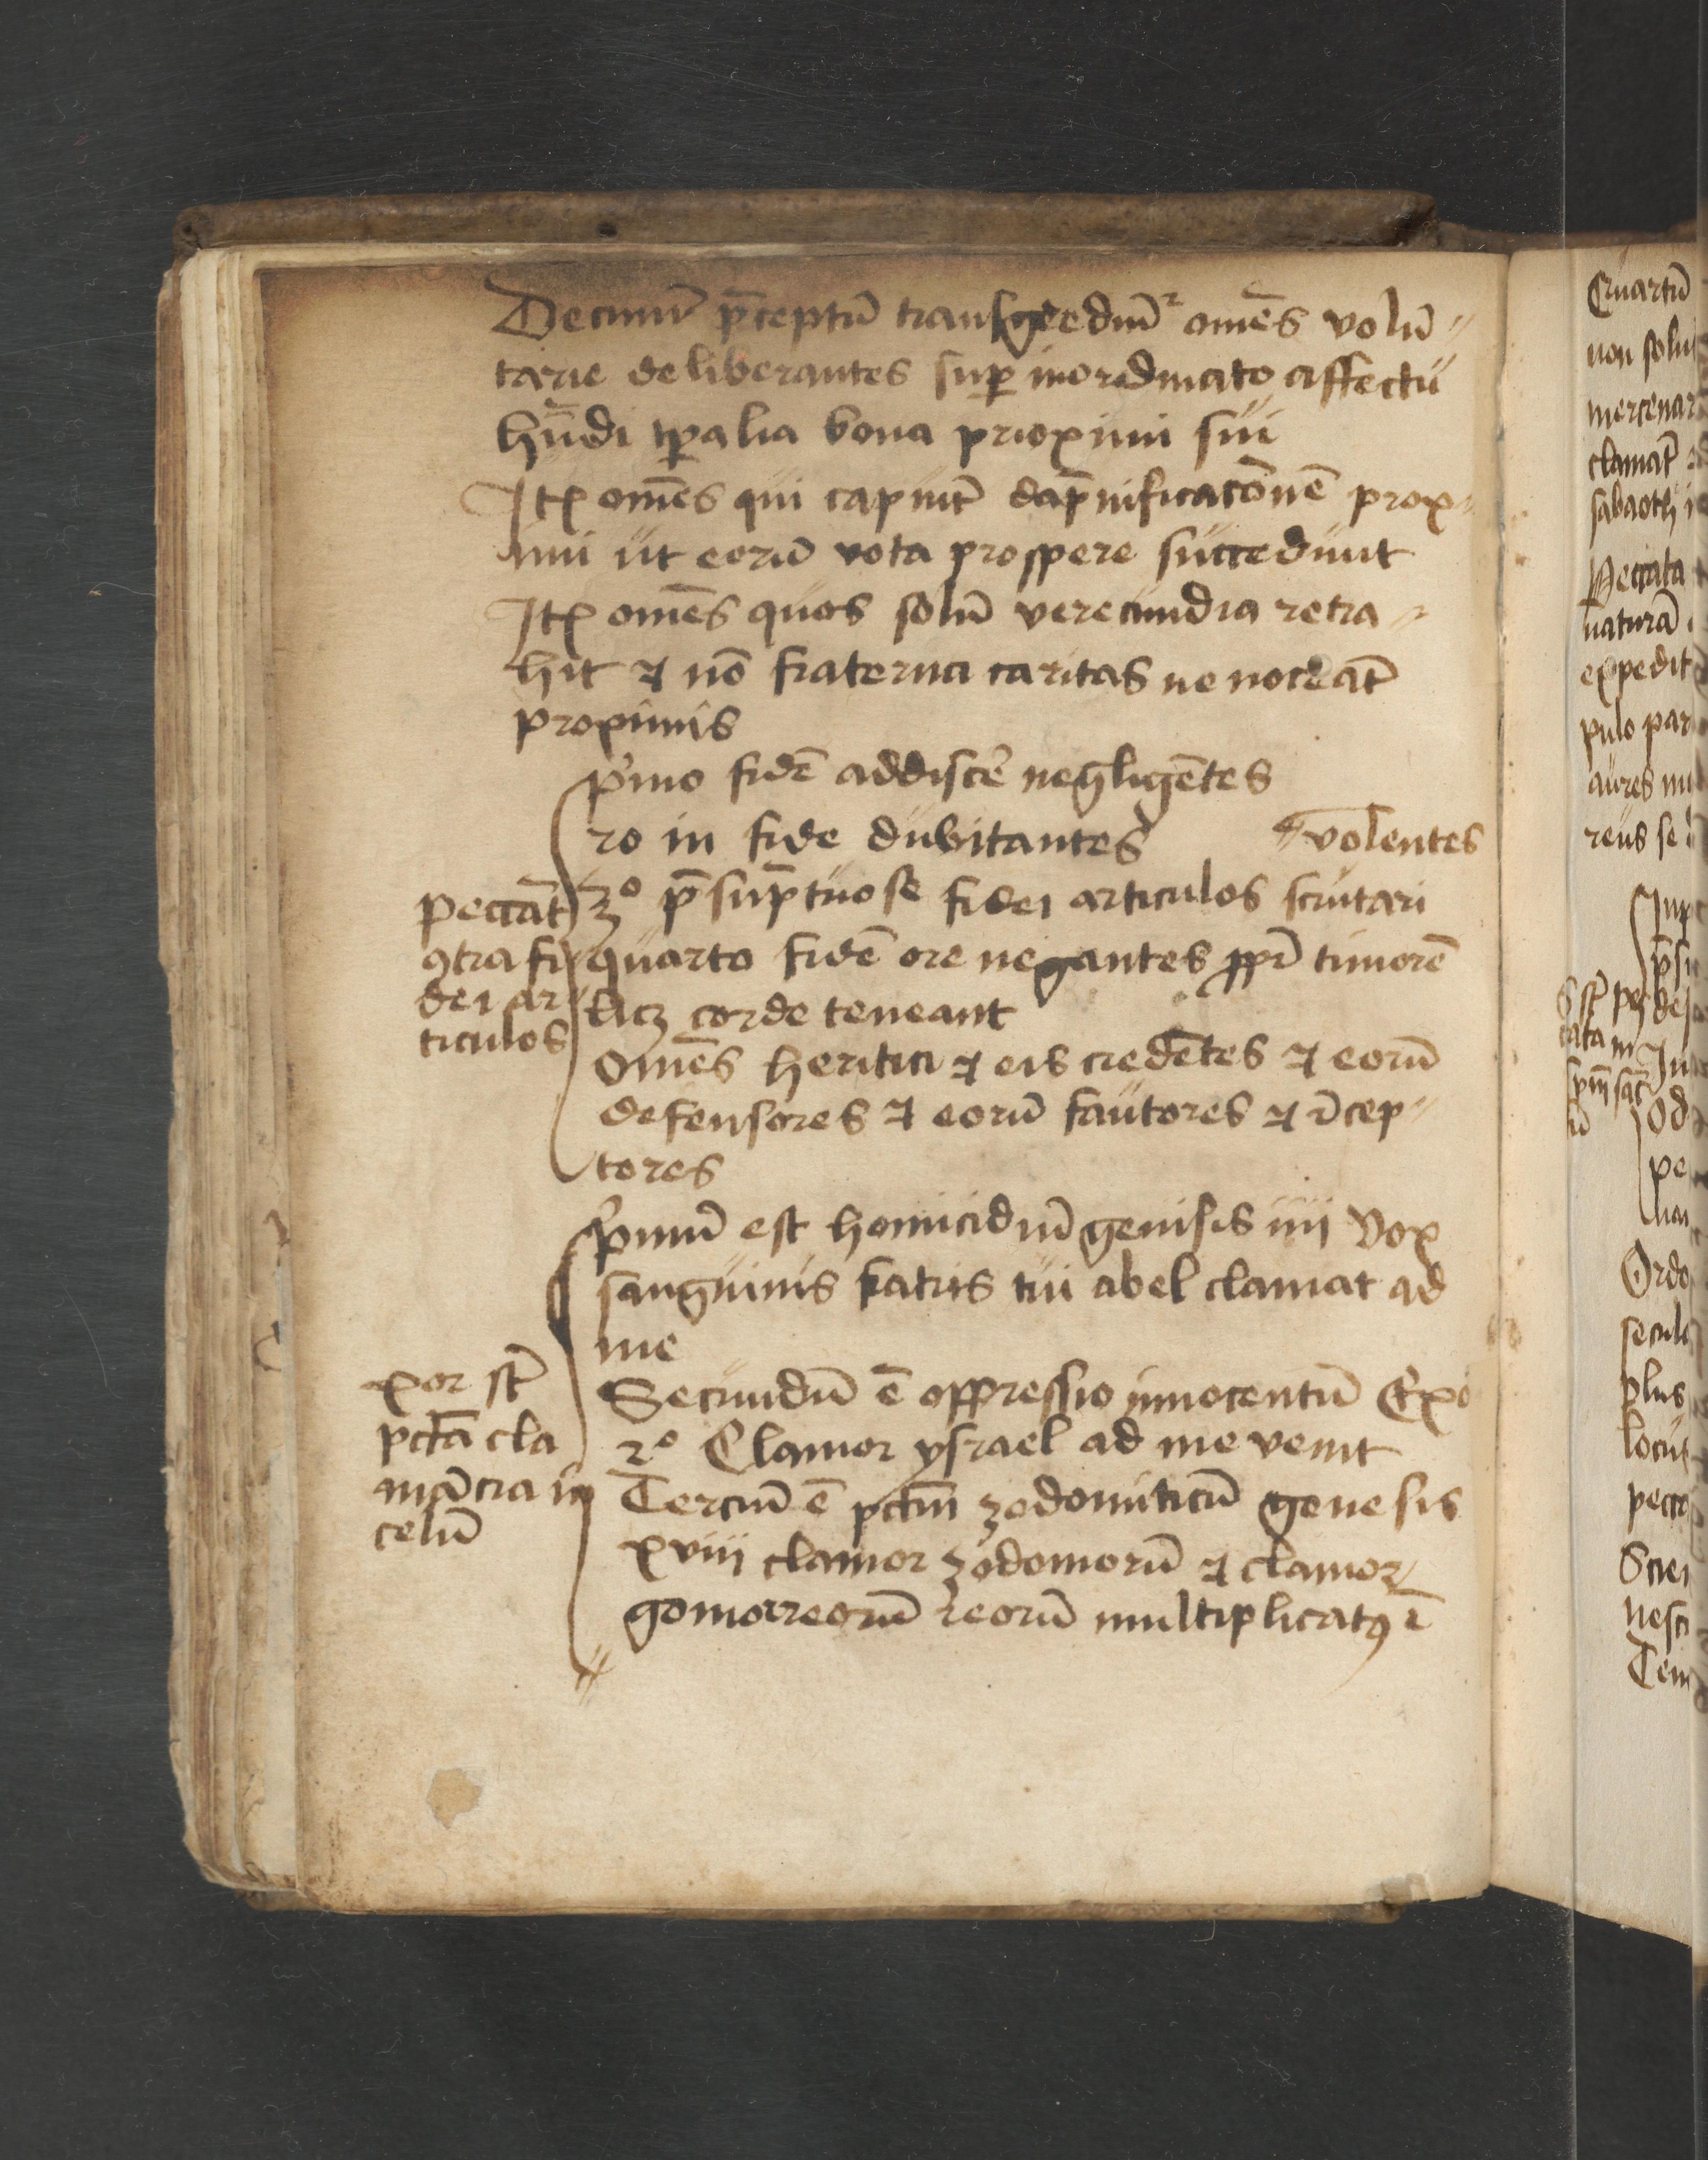 Decimū p̄ceptū transgrediūt᷑ omēs volū⸗
tarie deliberantes sup̱ inordinato affectu
hn̄di tp̱alia bona prioximi sui
Itē omēs qui capiūt dap̄nificacōnē prox⸗
imi ut eorū vota prospere succedunt
Itē omēs quos solū verecundia retra⸗
hit ⁊ nō fraterna caritas ne noceāt
proximis
Peccāt
ꝯtra fi
dei ar⸗
ticulos
p̾mo fidē addiscē negligētes
2o in fide dubitantes
⸗volentes
3o p̄sūptuose fidei articulos scrutari
quarto fidē ore negantes ꝓpt̄ timorē
licꝫ corde teneant
Omēs heritici ⁊ eis credētes ⁊ eorū
defensores ⁊ eorū fautores ⁊ r̄cep⸗
tores
xor st̄
pctā̄ cla
mācia in
celū
p̾mū est homicidiū genisis iiii Vox
sanguinis fratris tui abel clamat ad
me
Secundū ē oppressio innocentū Exo
2o Clamor ysrael ad me venit
Terciū ē pctm̄ zodomiticū genesis
xviii clamor zodomorū ⁊ clamor
gomorreorū reorū multiplicatꝰ ē
Quartū
non solū
mercenar
clamāt
sabaoth
Peccata
naturā
expedit
pulo par
aures
reus se
S st̄ pec
cata in
spm̄ sāc
Ordo
secul
plus
locut
pecc
Scien
nesci
Tem